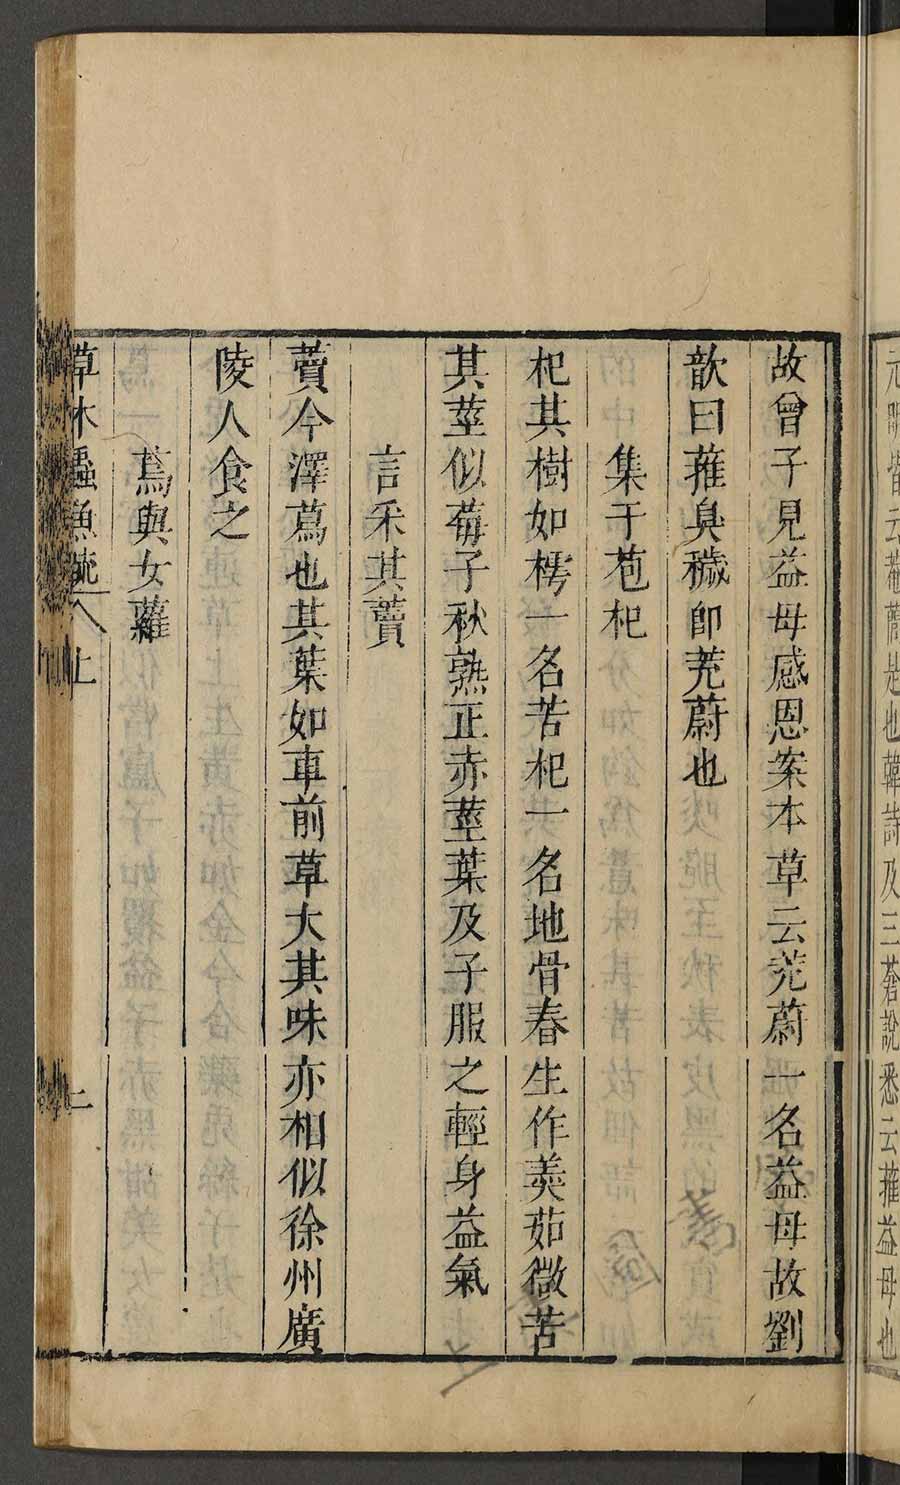 元明皆云菴䕡是也韓詩及三蒼說悉云蓷益母也
故曾子見益母感恩案本草云茺蔚一名益母故劉
歆曰蓷臭穢即茺蔚也
集于苞杞
杞其樹如樗一名苦杞一名地骨春生作羹茹微苦
其莖似莓子秋熟正赤莖葉及子服之輕身益氣
言采其藚
藚今澤蕮也其葉如車前草大其味亦相似徐州廣
陵人食之
蔦與女蘿
草木蟲魚疏 上 二